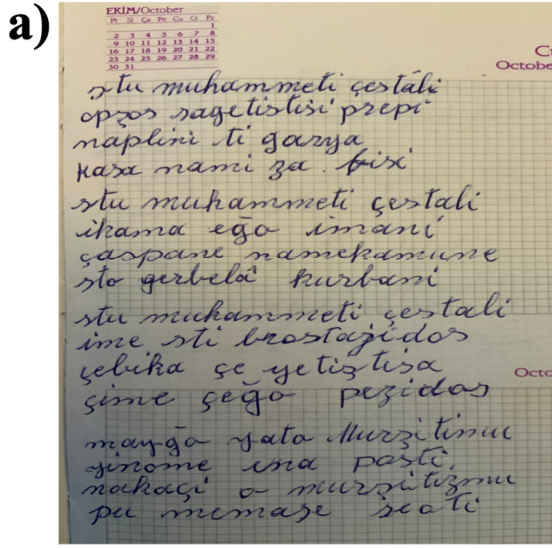 a)
EKİM/October
Pt Sl Ça Pe Cu Ct Pz
1
2 3 4 5 6 7 8
9 10 11 12 13 14 15
16 17 18 19 20 21 22
23 24 25 26 27 28 29
30 31
Octobe
stu muhammeti çestâli
opsos sagetistisi prepi
naplini ti garya
kasa nami za
stu muhammeti çestali
ikama eğo imani
çaspane namekamune
sto gerbelâ kurbani
stu muhammeti çestali
ime sti brostajidos
çebika çe yetiştisa
Octo
çime çeğo pezidos
mayğa yato Murşitimu
yinome ena posti
nakaçi o murşitizmu
pu memase